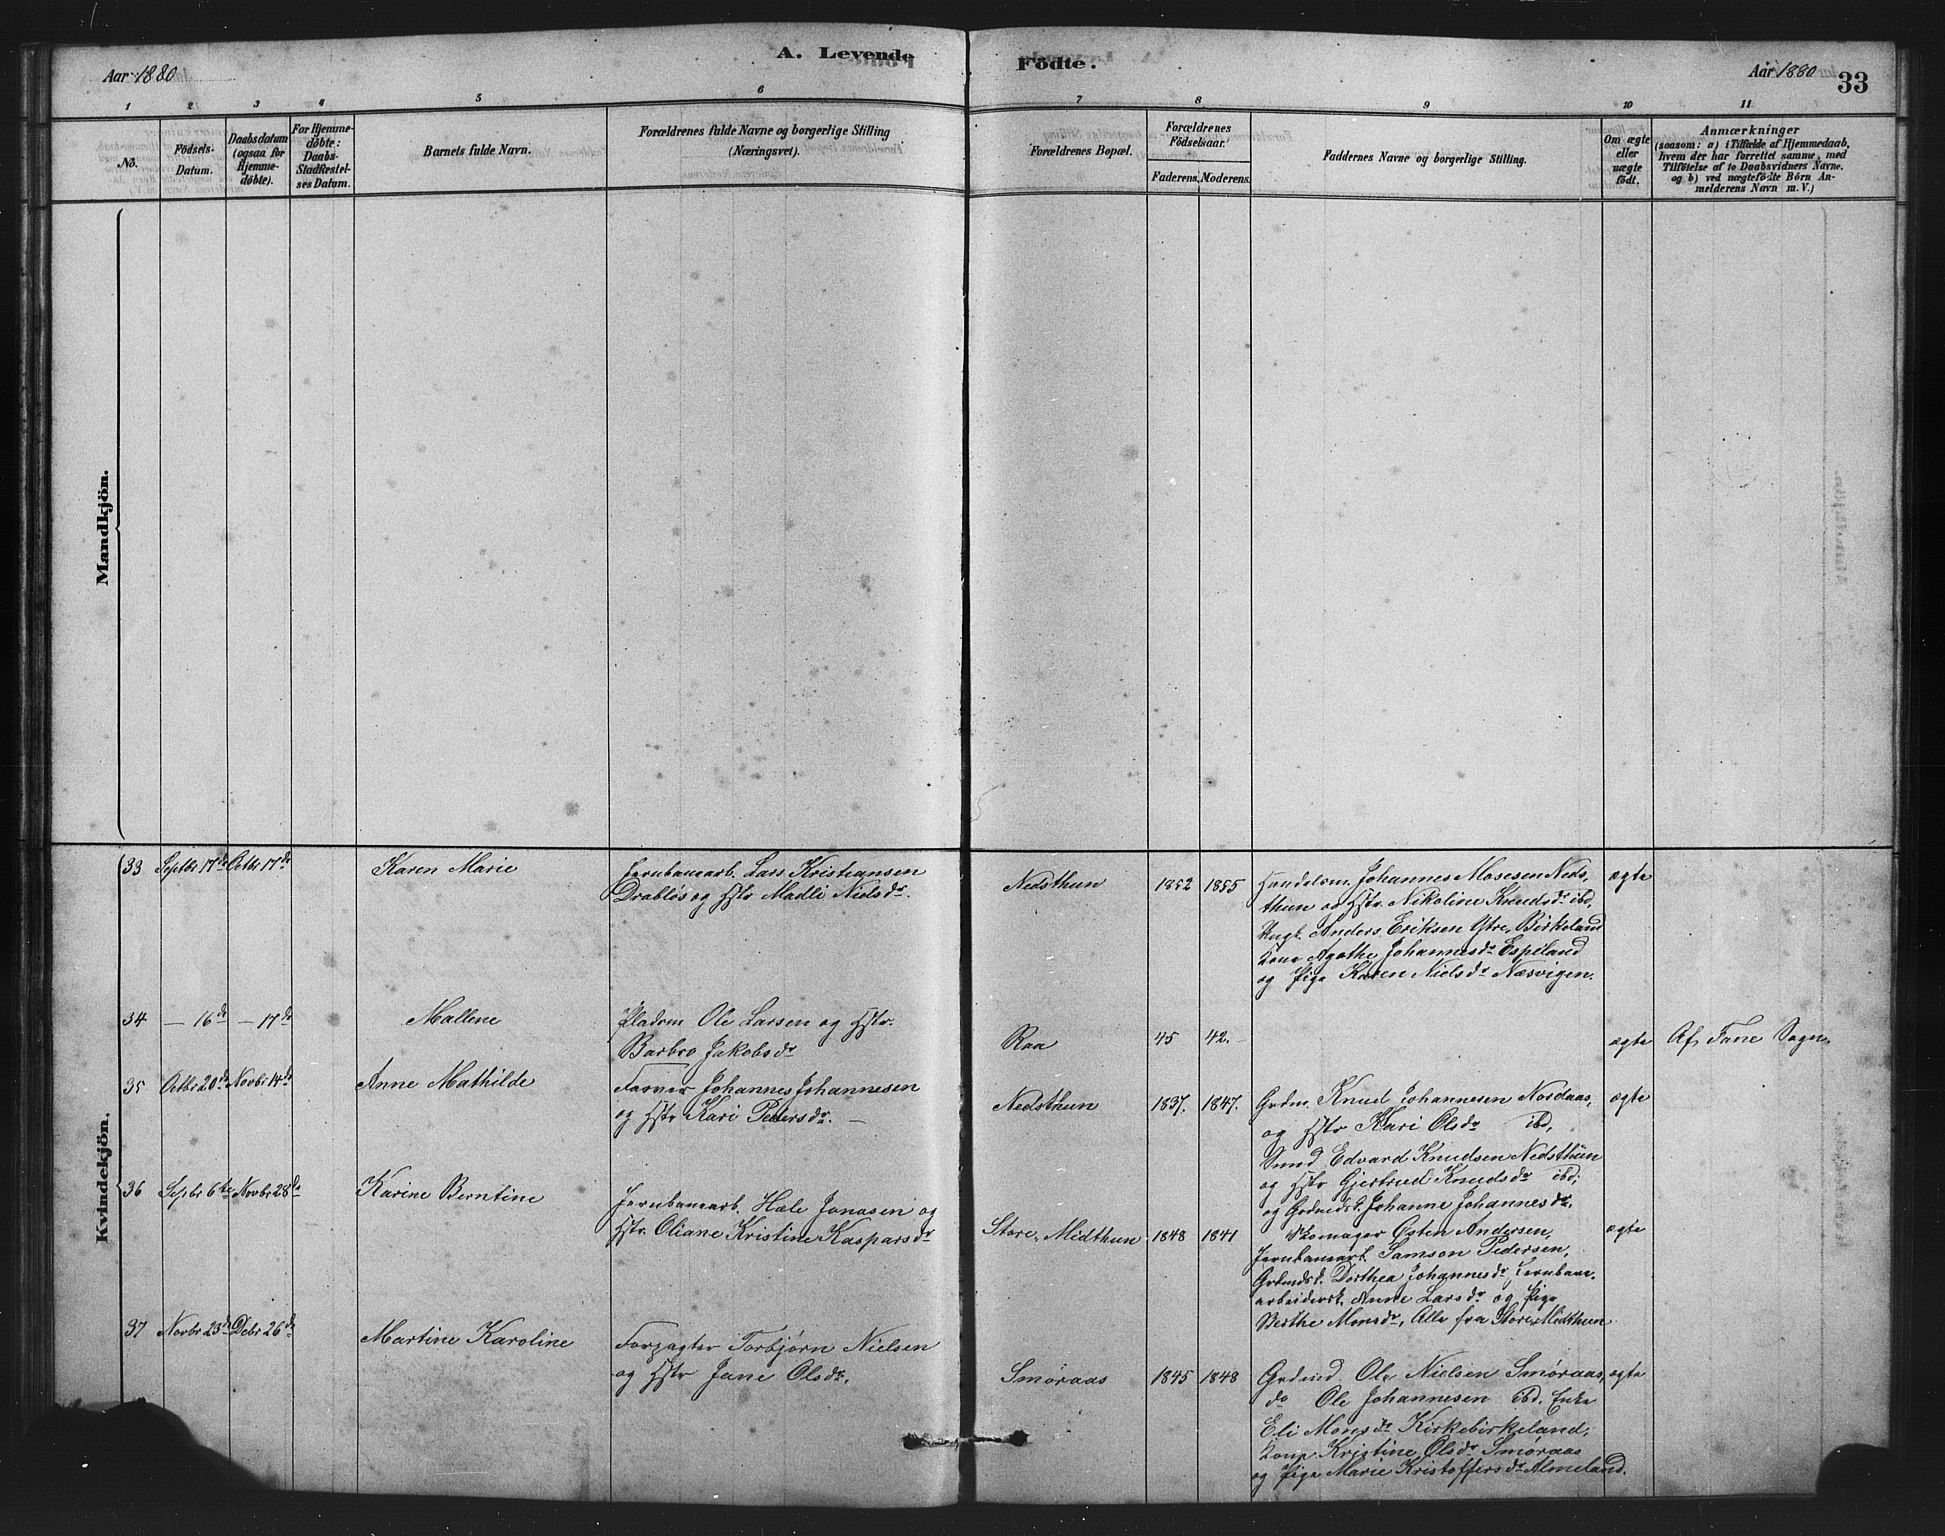 Aar 1880
A. Levende
Födte.
Aar 1880
33
1 2 3 4 5 6 7 8 9 10 11
No.
Födsels-
Datum.
Daabsdatum
(ogsaa for
Hjemme-
döbte).
For Hjemme-
döbte:
Daabs-
Stadfæstel-
ses Datum.
Barnets fulde Navn.
Forældrenes fulde Navne og borgerlige Stilling
(Næringsvei).
Forældrenes Bopæl.
Forældrenes
Födselsaar.
Faderens. Moderens.
Faddernes Navne og borgerlige Stilling.
Om ægte
eller
uægte
födt.
Anmærkninger
(saasom: a) i Tilfælde af Hjemmedaab,
hvem der har forrettet samme, med
Tilföielse af to Daabsvidners Navne.
og b) ved uægteföдte Börn An-
melderens Navn m. V.)
Mandkjön.
Kvindekjön.
33 Septbr 17de Octbr 17de
Karen Marie
Jernbanearb. Lars Kristiansen
Drabløs og Hstr Madli Nielsdr.
Nedsthun
1852 1855
Handelsm. Johannes Mosesen Neds,
thun og Hstr. Nikoline Knudsdr ibd,
Ungk. Anders Eriksen Ytre, Birkeland
Kone Agathe Johannesdr Espeland
og Pige Karen Nielsdr Næsvigen.
ægte
34 — 16de — 17de
Mallene
Pladsm Ole Larsen og Hstr.
Barbro Jakobsdr
Raa
45 42.
ægte
Af Fane Sogn.
35 Octbr 20de Novbr 14de
Anne Mathilde
Farver Johannes Johannesen
og Hstr Kari Pedersdr. —
Nedsthun
1837. 1847.
Grdm. Knud Johannesen Nordaas,
og Hstr Kari Olsdr ibd,
Smed Edvard Knudsen Nedsthun
og Hstr Gjertrud Knudsdr ibd;
og Grdmdsk. Johanne Johannesdr.
ægte
36 Sepbr 6te Novbr 28de
Karine Berntine
Jernbanearb. Hæle Jonasen og
Hstr. Oliane Kristine Kaspersdr
Store, Midthun
1848 1841
Skomager Østen Andersen,
Jernbanearb. Samson Pedersen,
Grdmdsk. Dorthea Johannesdr, Jernbane-
arbeidersk. Anne Larsdr og Pige
Berthe Monsdr, Alle fra Store, Midthun
ægte
37 Novbr 23de Debr 26de
Martine Karoline
Forpagter Torbjørn Nielsen
og Hstr Jane Olsdr.
Smøraas
1845 1848
Grdmd. Ole Nielsen Smøraas,
do Ole Johannesen ibd. Enke
Eli Monsdr Kirkebirkeland;
Kone Kristine Olsdr Smøraas
og Pige Marie Kristoffersdr Almeland.
ægte